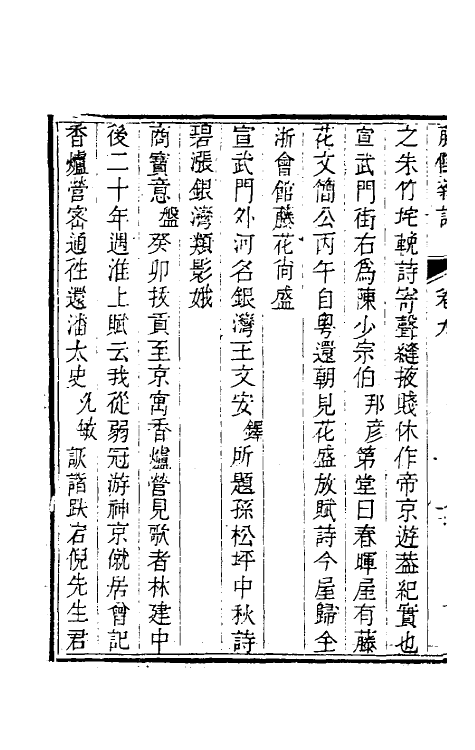 之朱竹垞輓詩寄聲縫掖賤休作帝京遊蓋紀實也
宣武門街右爲陳少宗伯邦彥第堂曰春暉屋有藤
花文簡公丙午自粵還朝見花盛放賦詩今屋歸全
浙會館藤花尙盛
宣武門外河名銀灣王文安鐸所題孫松坪中秋詩
碧漲銀灣類影娥
商寶意盤癸卯拔貢至京寓香爐營見歌者林建中
後二十年遇淮上賦云我從弱冠游神京僦居曾記
香爐營密通往還潘太史允敏詼諧趺宕倪先生君